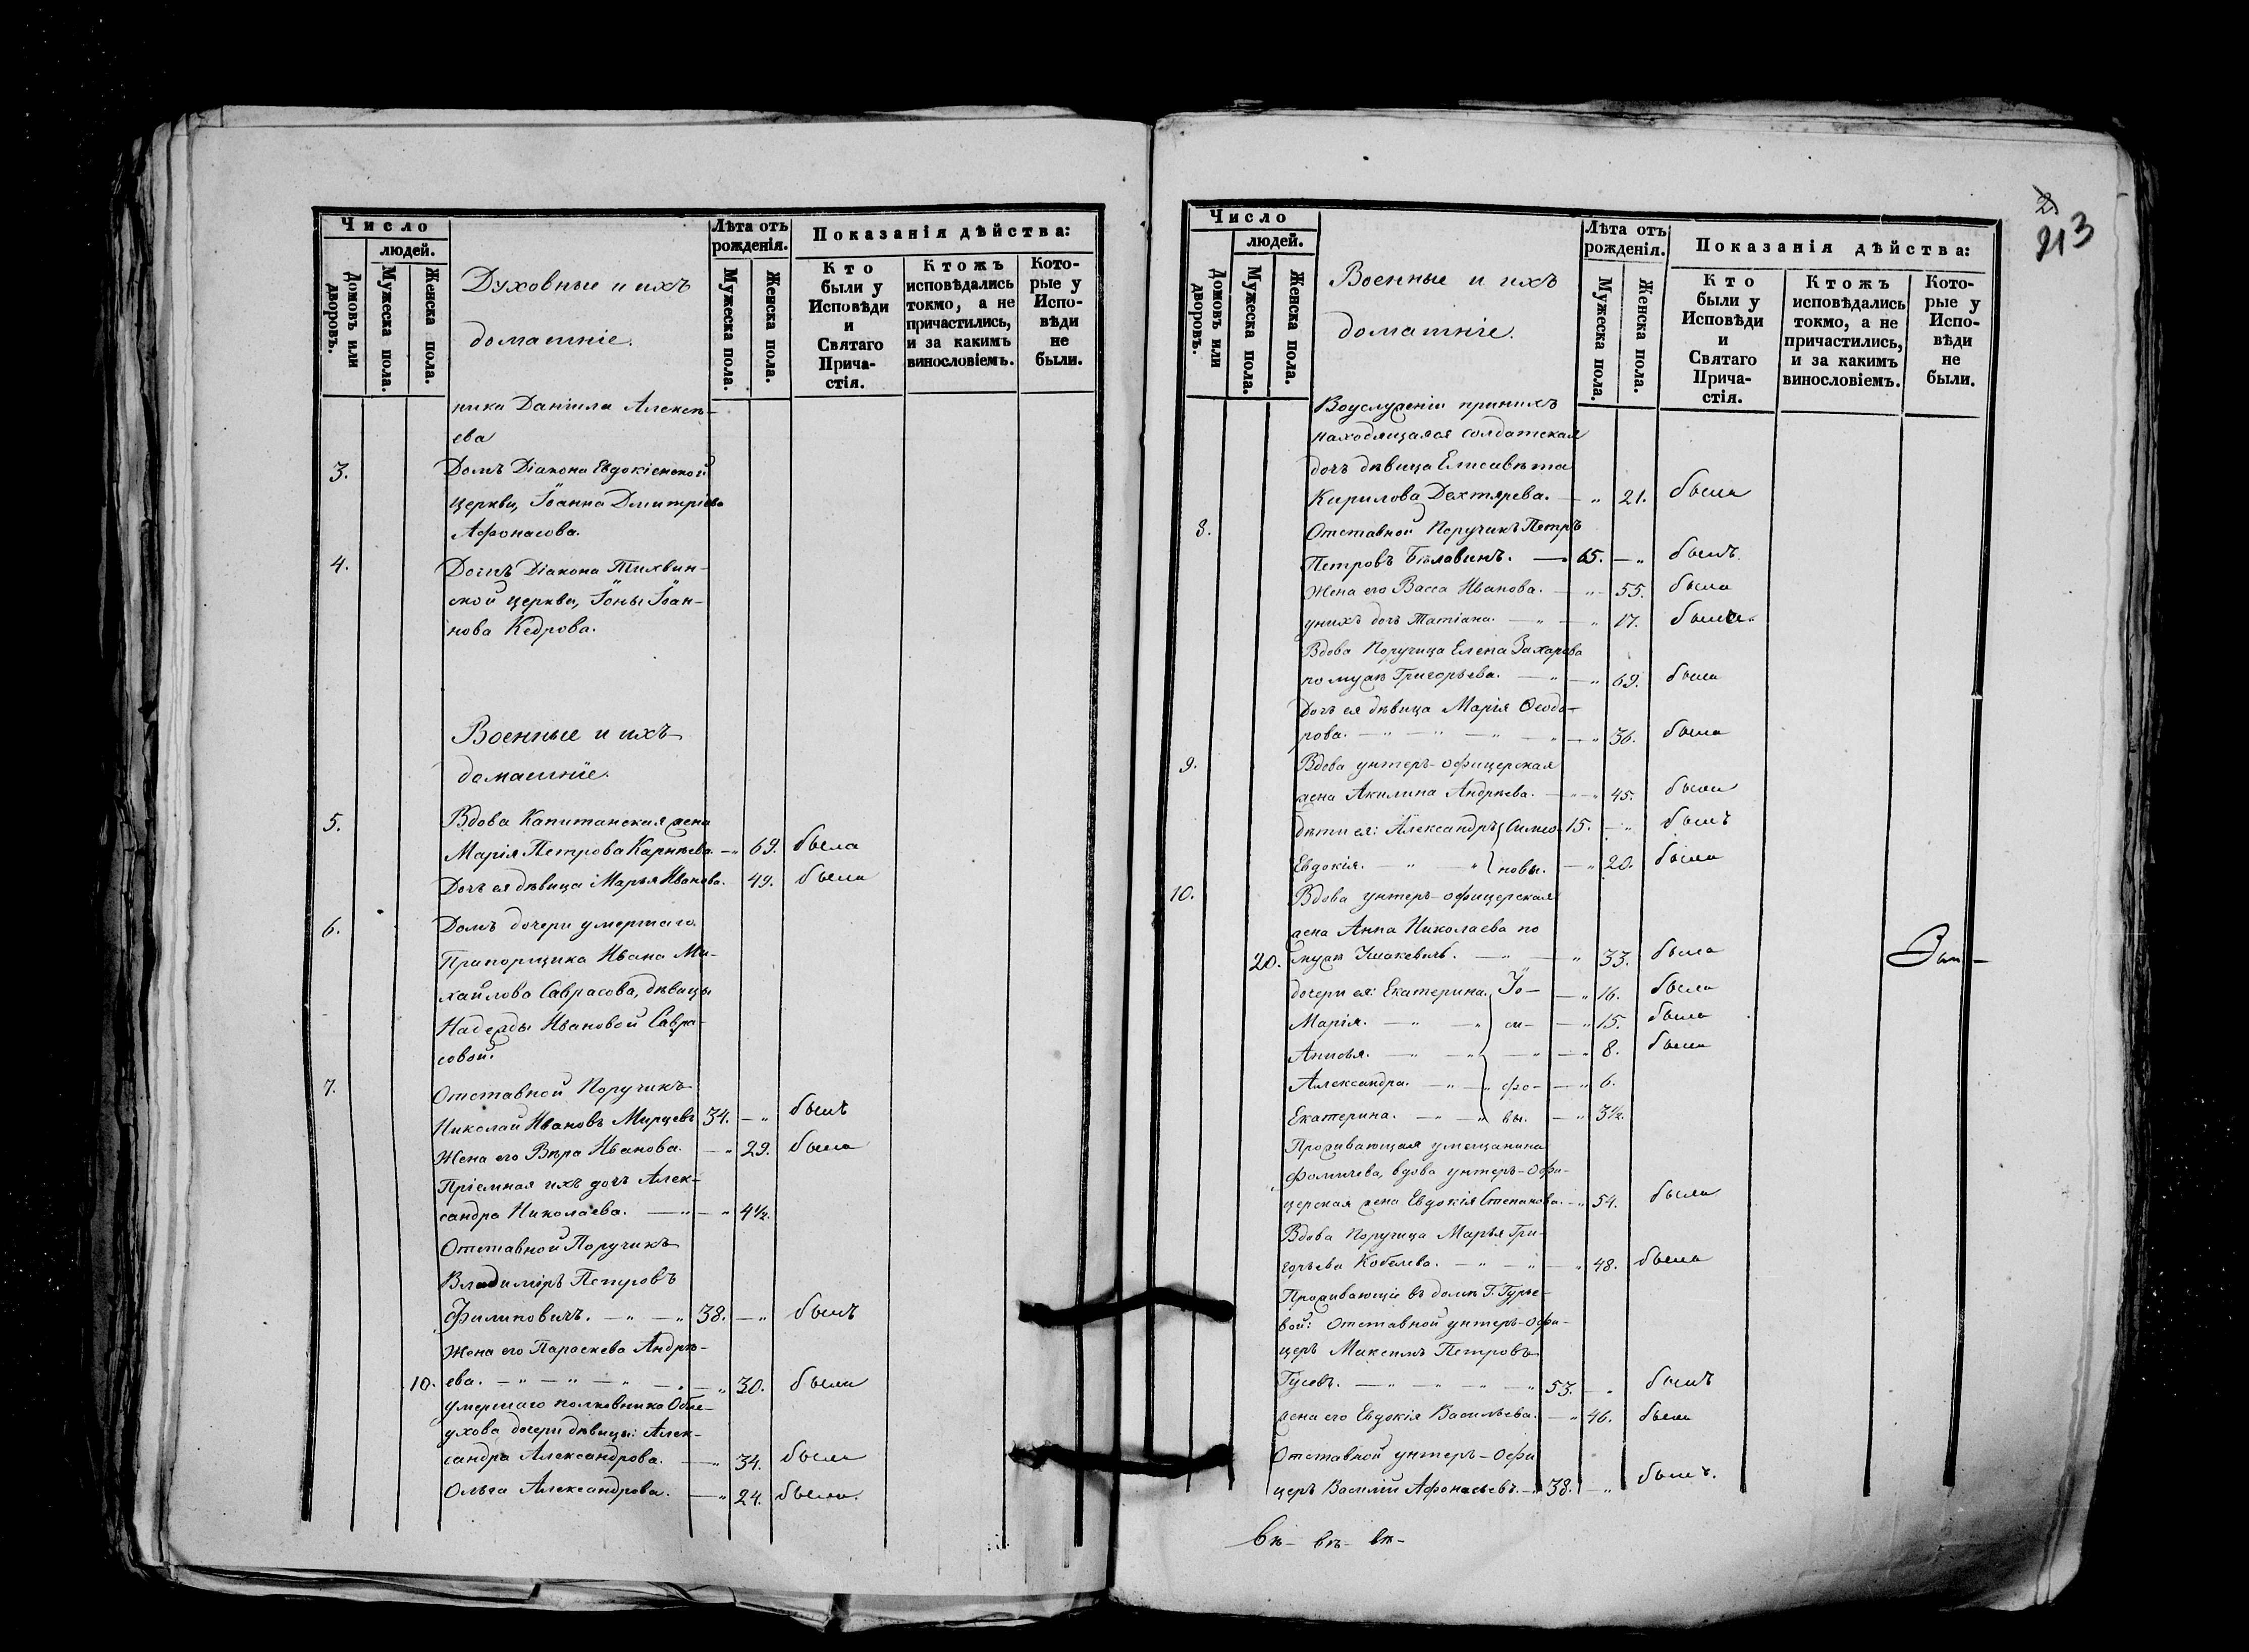 Число
людей.
Домовъ или дворовъ.
Мужеска пола.
Женска пола.
Духовные и ихъ
домашніе.
Лѣта отъ
рожденія.
Мужеска пола.
Женска пола.
Показанія дѣйства:
Кто
были у
Исповѣди
и
Святаго
Прича-
стія.
Ктожъ
исповѣдались
токмо, а не
причастились,
и за какимъ
винословіемъ.
Кото-
рые у
Испо-
вѣди
не
были.
ника Даніила Алексѣ-
ева
3. Домъ Діакона Евдокіенской
церкви, Іоанна Дмитріева
Афонасова.
4. Домъ Діакона Тихвин-
ской церкви, Іоны Іоан-
нова Кедрова.
Военные и ихъ
домашніе.
5. Вдова Капитанская жена
Марія Петрова Карнѣева. — „ 69. была
Дочь ея дѣвица Марья Иванова. 49. была
6. Домъ дочери умершаго
Прапорщика Ивана Ми-
хайлова Саврасова, дѣвицы
Надежды Ивановой Савра-
совой.
7. Отставной Поручикъ
Николай Ивановъ Мирцевъ 34. — „ былъ
Жена его Вѣра Иванова. — „ 29. была
Пріемная ихъ дочь Алек-
сандра Николаева. — „ — „ 4½.
Отставной Поручикъ
Владиміръ Петровъ
Филиповичъ. — „ — „ 38. — „ былъ
Жена его Параскева Андрѣ-
10. ева. — „ — „ — „ — „ — „ 30. была
умершаго полковника Обле-
ухова дочери дѣвицы: Алек-
сандра Александрова. — „ 34. была
Ольга Александрова. — „ 24. была.
2
213
Число
людей.
Домовъ или дворовъ.
Мужеска пола.
Женска пола.
Военные и ихъ
домашніе.
Лѣта отъ
рожденія.
Мужеска пола.
Женска пола.
Показанія дѣйства:
Кто
были у
Исповѣди
и
Святаго
Прича-
стія.
Ктожъ
исповѣдались
токмо, а не
причастились,
и за какимъ
винословіемъ.
Кото-
рые у
Испо-
вѣди
не
были.
Воуслуженіи принихъ
находящаяся солдатская
дочь дѣвица Елисавѣта
Кирилова Дехтярева. — „ 21. была
8. Отставной Поручикъ Петръ
Петровъ Бѣлавинъ. — 65. — „ былъ
Жена его Васса Иванова. — „ — 55. была
унихъ дочь Татіана. — „ — „ 17. была
Вдова Поручица Елена Захарова
помужѣ Григорьева. — „ — „ 69. была
Дочь ея дѣвица Марія Ѳеодо-
рова. — „ — „ — „ — „ — „ 36. была
9. Вдова унтеръ-офицерская
жена Акилина Андрѣева. — „ — „ 45. была
дѣти ея: Александръ } Симео- 15. — „ былъ
Евдокія. — „ — „ } новы. — „ 20. была
10. Вдова унтеръ-офицерская
жена Анна Николаева по
20. мужѣ Ушакевичъ. — „ — „ 33. была
дочери ея: Екатерина. } Іо- — „ 16. была
Марія. — „ — „ } си- — „ 15. была
Анисья. — „ — „ } — „ — „ 8. была
Александра. — „ — „ фо- — „ 6.
Екатерина. — „ — „ } вы. — „ 3½.
Проживающая умещанина
Фомичева, вдова унтеръ-офи-
церская жена Евдокія Степанова. — „ 54. была
Вдова Поручица Марья Гри-
горьева Кобелева. — „ — „ — „ 48. была
Проживающіе въ домѣ Г. Гурье-
вой: Отставной унтеръ-офи-
церъ Максимъ Петровъ
Гусевъ. — „ — „ — „ — „ 53. — „ былъ
жена его Евдокія Васильева. — „ 46. была
Отставной унтеръ-офи
церъ Василій Афонасьевъ. — „ 38. — „ былъ.